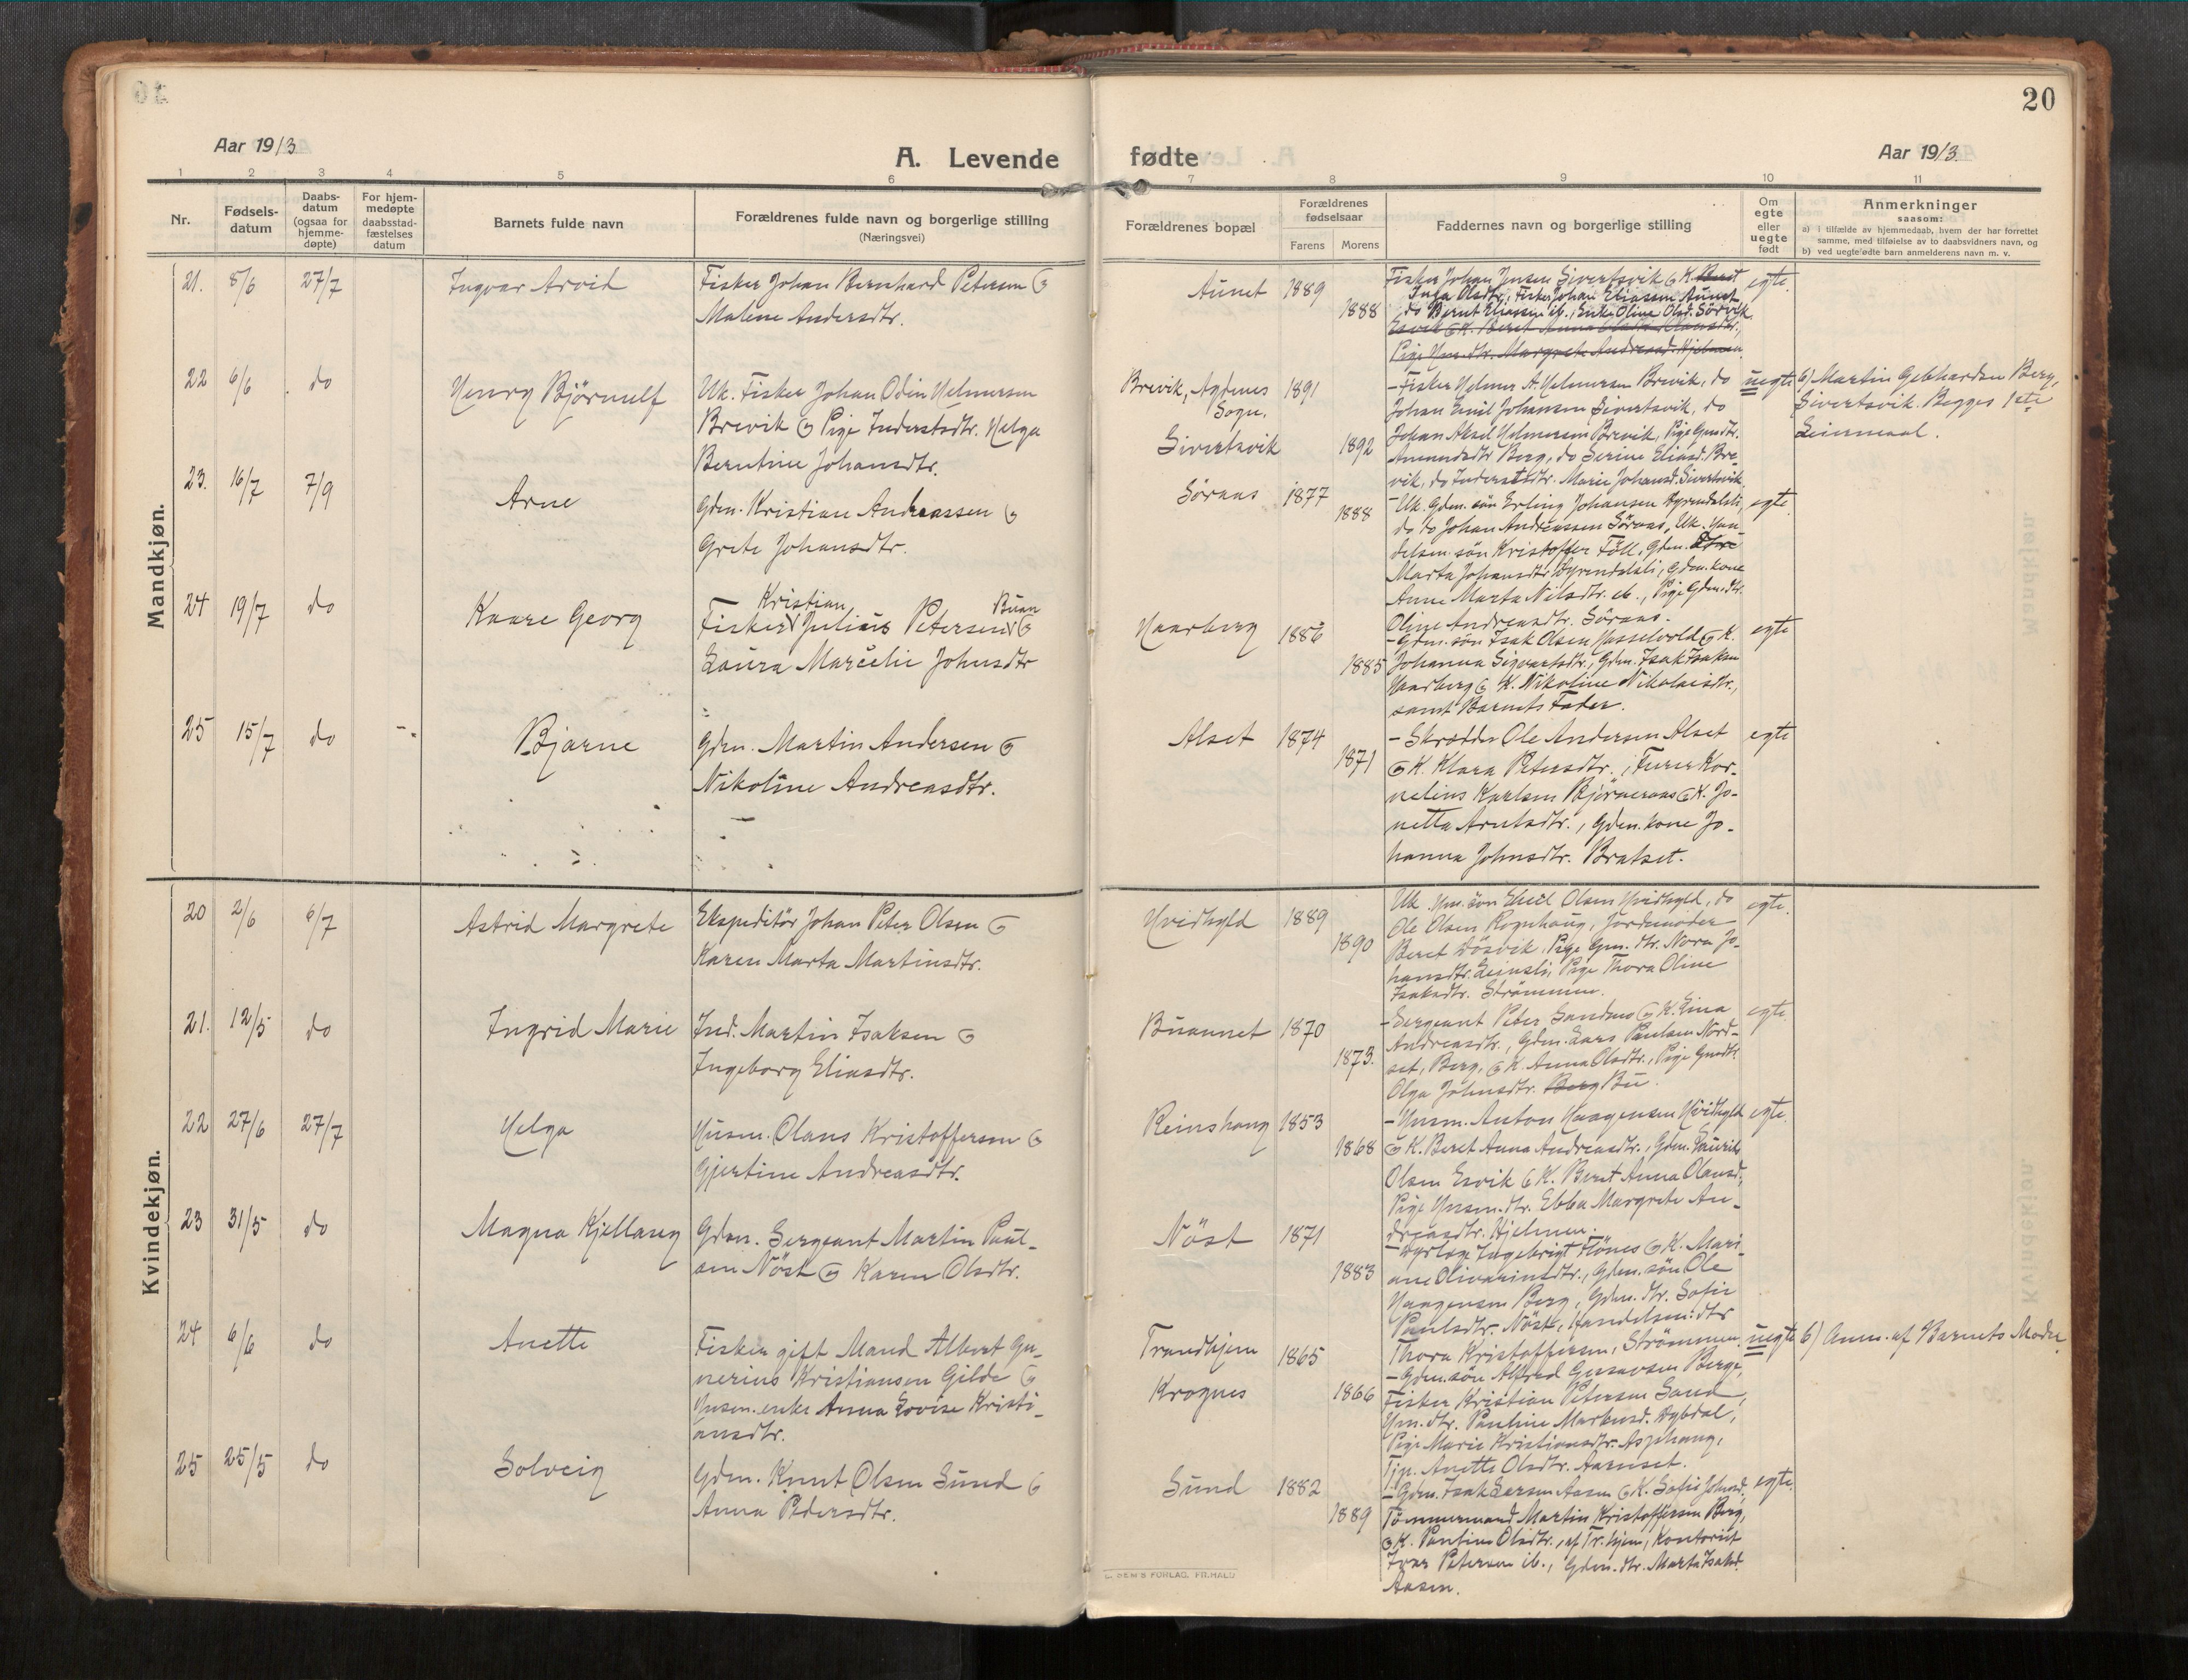 20
Aar 1913
A. Levende fødte
Aar 1913.
1 2 3 4 5 6 7 8 9 10 11
Nr.
Fødsels-
datum
Daabs-
datum
(ogsaa for
hjemme-
døpte)
For hjem-
medøpte
daabsstad-
fæstelses
datum
Barnets fulde navn
Forældrenes fulde navn og borgerlige stilling
(Næringsvei)
Forældrenes bopæl
Forældrenes
fødselsaar
Farens Morens
Faddernes navn og borgerlige stilling
Om
egte
eller
uegte
født
Anmerkninger
saasom:
a) i tilfælde av hjemmedaab, hvem der har forrettet
samme, med tilføielse av to daabsvidners navn, og
b) ved uegte fødte barn anmelderens navn m. v.
Mandkjøn.
21. 8/6 27/7 Ingvar Arvid
Fisker Johan Bernhard Petersen &
Malene Andersdtr.
Aunet 1889
1888
Fisker Johan Jensen Sivertsvik & K. Beret
Inga Olsdtr., Fisker Johan Eliassen Aunet,
do Bernt Eliassen ib., Enke Oline Olsd. Sørvik
Pige Hsm.dtr. Margrete Andreasd. Hjelmen.
egte.
22 6/6 do Henry Bjørnulf
Uk. Fisker Johan Odin Helmersen
Brevik & Pige Inderstsdtr. Helga
Berntine Johansdtr.
Brevik, Agdenes
Sogn.
1891
Sivertsvik 1892
- Fisker Helmer A. Helmersen Brevik, do
Johan Emil Johansen Sivertsvik, do
Johan Aksel Helmersen Brevik, Pige Gmdtr.
Amundsdtr. Berg, do Serine Eliasd. Bre-
vik, do Inderstsdtr. Marie Johansd. Sivertsvik.
uegte
b) Martin Gebhardsen Berg,
Sivertsvik. Begges 1ste
Leiermaal.
23. 16/7 7/9 Arne
Gdm. Kristian Andreassen &
Grete Johansdtr.
Søraas 1877
1888
- Uk. Gdm. søn Erling Johansen Dyrendalsli,
do do Johan Andreassen Søraas, Uk. Han-
delsm. søn Kristoffer Føll, Gdm.
Marta Johansdtr. Dyrendalsli, Gdm. kone
Anne Marta Nilsdtr. ib., Pige Gdm.dtr.
Oline Andreasdtr. Søraas.
egte.
24 19/7 do Kaare Georg
Kristian Buan
Fisker Julius Petersen &
Laura Marcelie Johnsdtr
Haarberg 1886
1885
- Gdm. søn Isak Olsen Hasselvold & K.
Johanna Sigvartsdtr., Gdm. Isak Isaksen
Haarberg & K. Nikoline Nikolaisdtr.,
samt Barnets Fader.
egte
25 15/7 do Bjarne
Gdm. Martin Andersen &
Nikoline Andreasdtr.
Alset 1874
1871
- Skrædder Ole Andersen Alset
& K. Klara Petersdtr., Furer Kor-
nelius Karlsen Bjørneraas & K. Jo-
netta Arntsdtr., Gdm. kone Jo-
hanna Johnsdtr. Bratset.
egte
Kvindekjøn.
20 2/6 6/7 Astrid Margrete
Ekspeditør Johan Peter Olsen &
Karen Marta Martinsdtr.
Hvidhyld 1889
1890
Uk. Hsm. søn Olsen Hvidhyld, do
Ole Olsen Rognhaug, Jordmoder
Beret Døsvik, Pige Gm. dtr. Nora Jo-
hansdtr. Leinsli, Pige Thora Oline
Isaksdtr. Strømmen.
egte.
21. 12/5 do Ingrid Marie
Ind. Martin Isaksen &
Ingeborg Eliasdtr.
Buaunet 1870
1873.
- Sergeant Peter Sandnes & K. Lina
Andreasdtr., Gdm. Lars Paulsen Nord-
set, Berg, & K. Anna Olsdtr., Pige Gmdtr.
Olga Johnsdtr. Berg Bu.
egte.
22 27/6 27/7 Helga
Husm. Olaus Kristoffersen &
Gjertine Andreasdtr.
Reinshaug 1853
1868
- Husm. Anton Haagensen Hvidhyld
& K. Beret Anna Andreasdtr., Gdm. Laurits
Olsen Esvik & K. Beret Anna Olausd.,
Pige Husm.dtr. Ebba Margrete An-
dreasdtr. Hjelmen.
egte.
23 31/5 do Magna Kjellaug
Gdm. Sergeant Martin Paul-
sen Nøst & Karen Olsdtr.
Nøst 1871
1883
- Dyrlæge Ingebrigt Flønes & K. Mari-
ane Olivariusdtr., Gdm. søn Ole
Haagensen Berg, Gdm. dtr. Sofie
Paulsdtr. Nøst, Handelsm. dtr
Thora Kristoffersen, Strømmen.
24 6/6 do Anette
Fisker gift Mand Albert Gu-
nerius Kristiansen Gilde &
Husm. enke Anna Lovise Kristi-
ansdtr.
Trondhjem 1865
Krognes 1866
- Gdm. søn Alfred Gustavsen Berge,
Fisker Kristian Petersen Sand,
Hsm. dtr. Pauline Markusd. Dybdal,
Pige Marie Kristiansdtr. Asphaug,
Tjp. Anette Olsdtr. Aarnset.
uegte
b) Anm. af Barnets Moder.
25 25/5 do Solveig
Gdm. Knut Olsen Sund &
Anna Pedersdtr.
Sund 1882
1889
- Gdm. Isak Larsen Aasen & K. Sofie Johnsd.,
Tømmermand Martin Kristoffersen Berg,
& K. Pauline Olsdtr., af Tr.hjem, Kontorist
Ivar Petersen ib., Gdm. dtr. Marta Isaksd.
Aasen.
egte.
FORLAG. FR.HALD